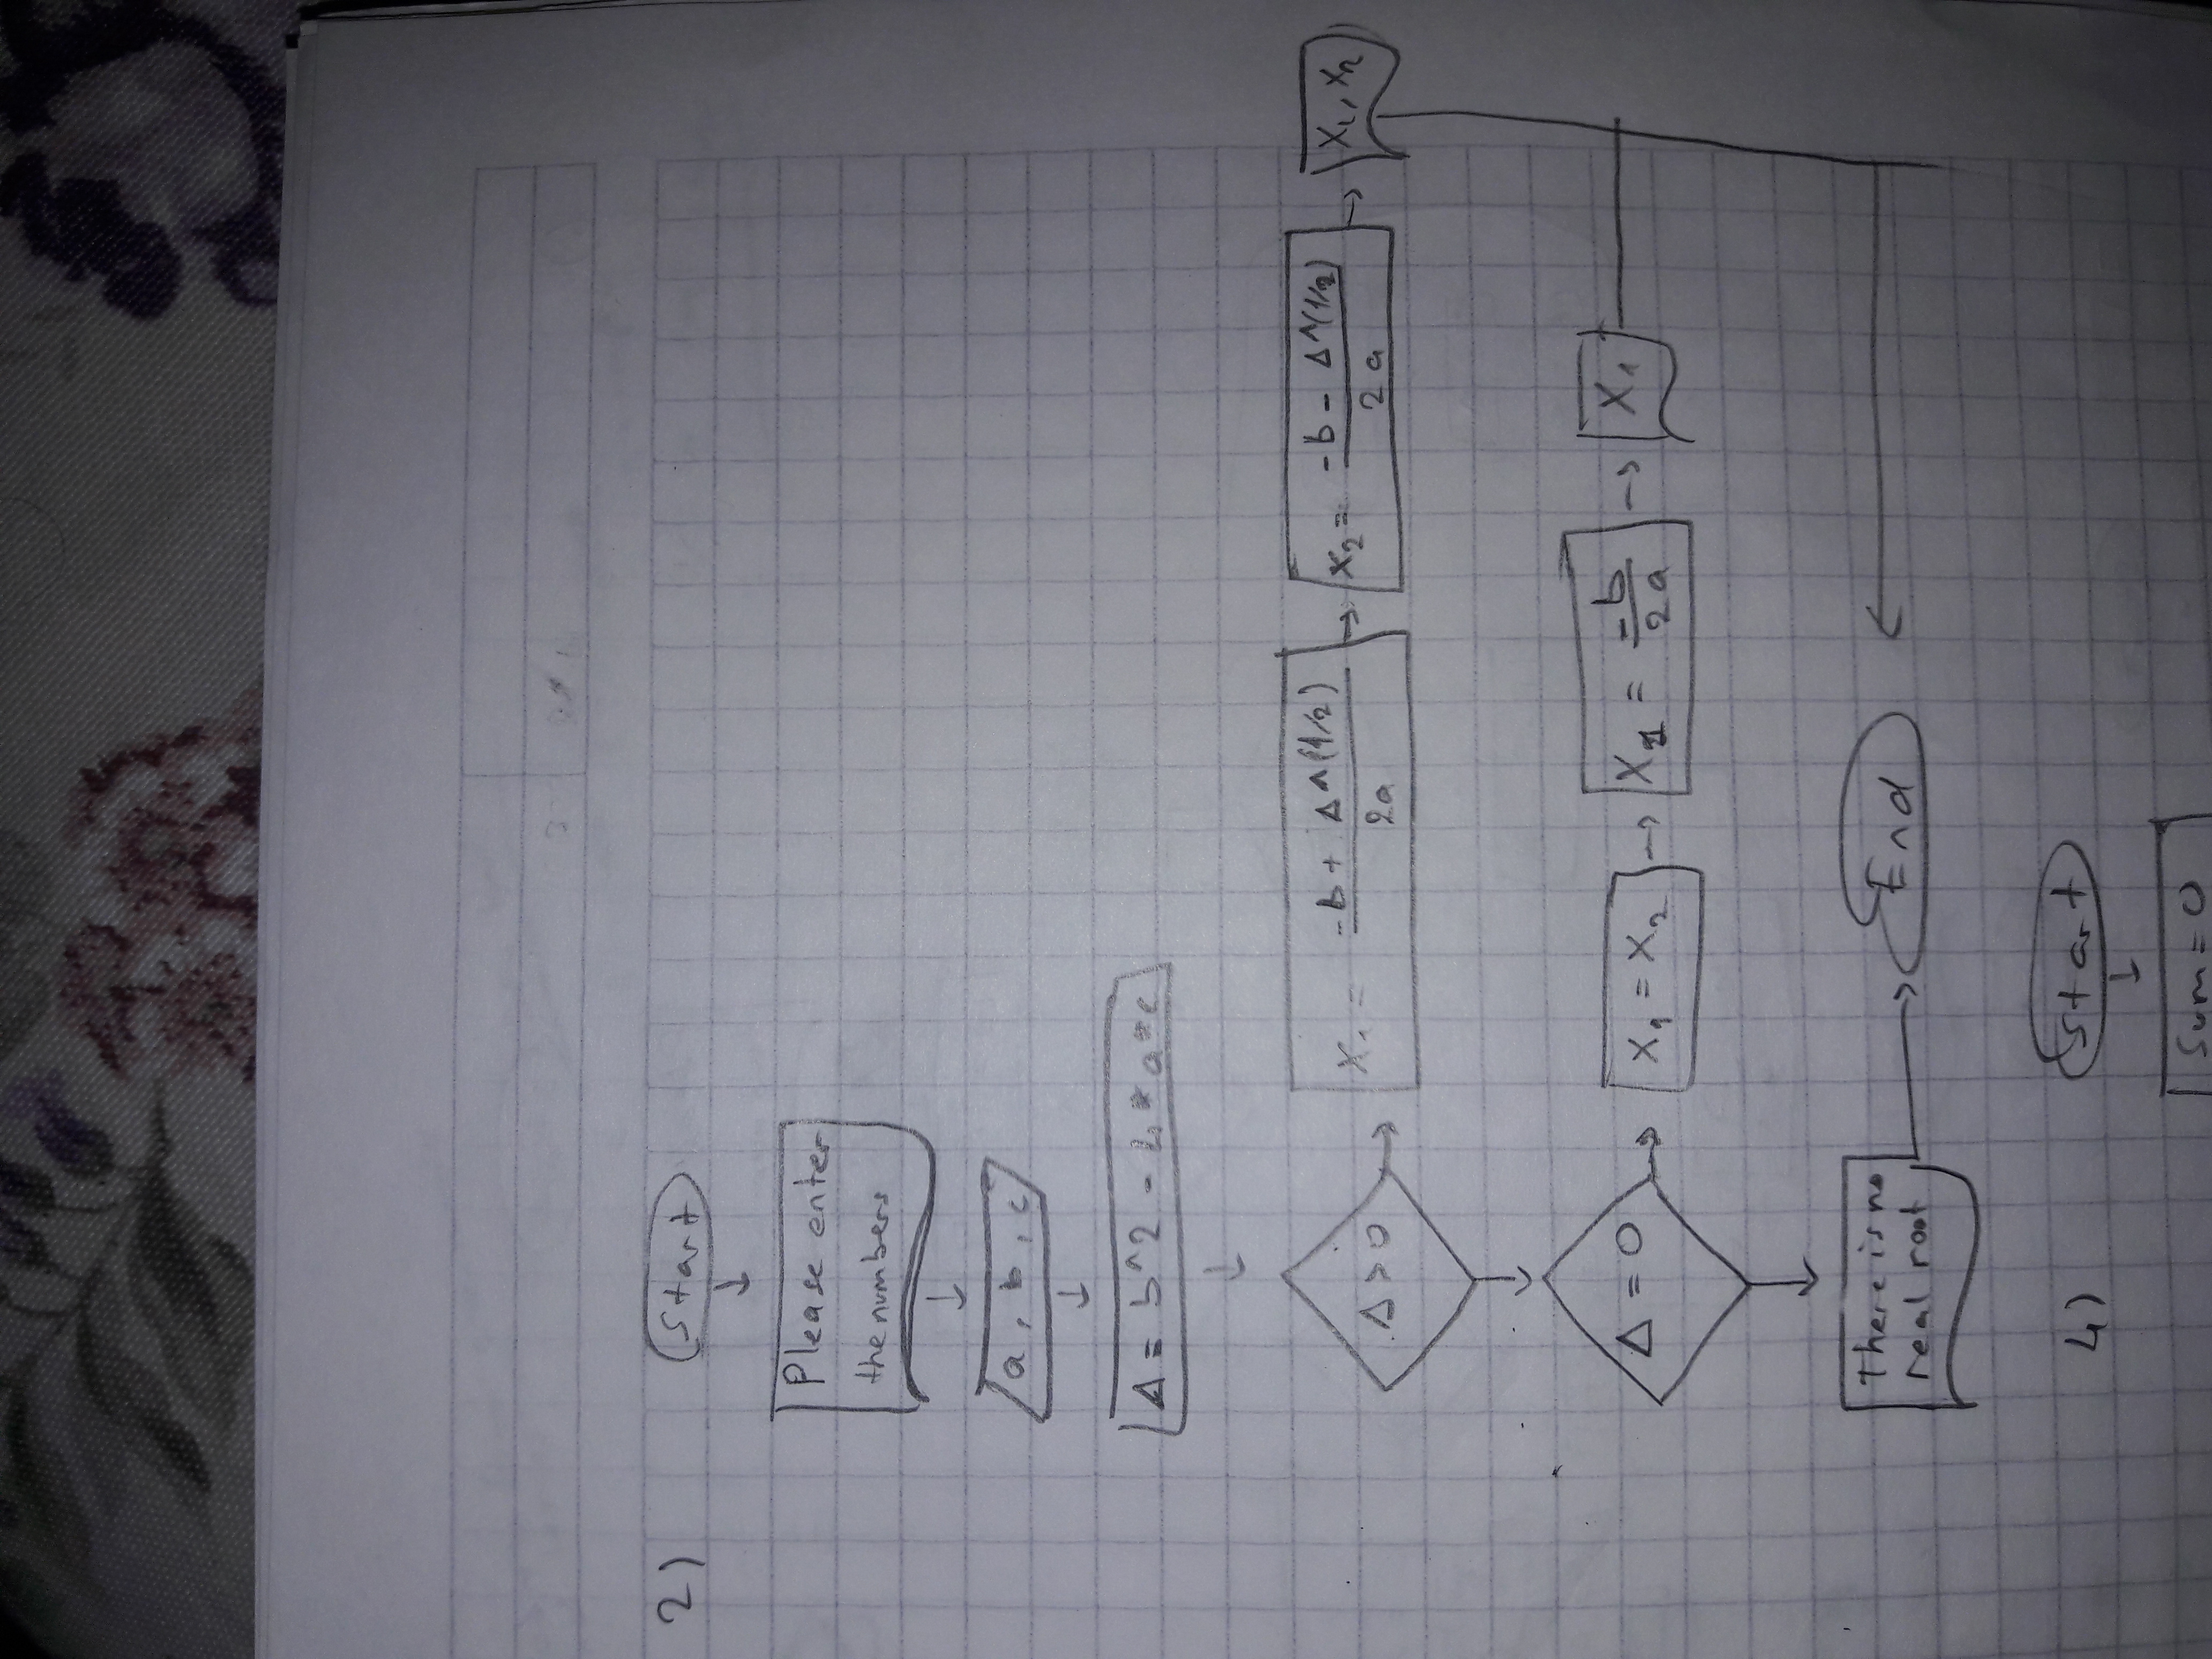 2)
Start
Please enter
the numbers
a, b, c
Δ = b^2 - 4*a*c
Δ > 0
X₁ = -b + Δ^(1/2)
2a
X₂ = -b - Δ^(1/2)
2a
X₁, X₂
Δ = 0
X₁ = X₂
X₁ = -b
2a
X₁
There is no
real root
End
4)
Start
Sum = 0